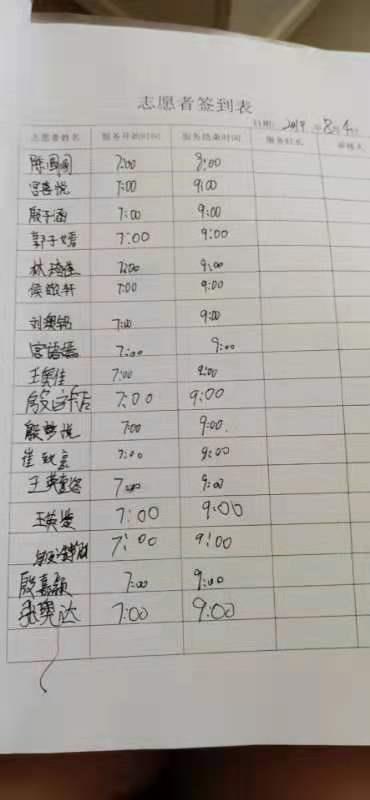 志愿者签到表
日期: 2019 年 8 月 4 日
志愿者姓名 服务开始时间 服务结束时间 服务时长 审核人
7:00 9:00
宫喜悦 7:00 9:00
殷子涵 7:00 9:00
郭子嫣 7:00 9:00
林琦 7:00 9:00
侯敬轩 7:00 9:00
刘奥铭 7:00 9:00
宫语嫣 7:00 9:00
王奕佳 7:00 9:00
殷 7:00 9:00
殷梦悦 7:00 9:00
崔 7:00 9:00
王英 7:00 9:00
王英 7:00 9:00
7:00 9:00
殷嘉颖 7:00 9:00
奕达 7:00 9:00